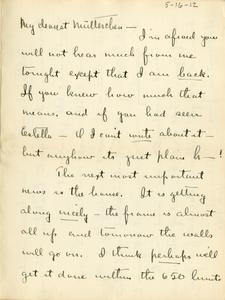 5-16-12
My dearest Mütterchen—
I'm afraid you
will not hear much from me
tonight except that I am back.
If you knew how much that
means, and if you had seen
Estella — I can't write about it —
but anyhow its just plain h—!
The next most important
news is the house. It is getting
along nicely — the frame is almost
all up and tomorrow the walls
will go on. I think perhaps we'll
get it done within the 650 limit